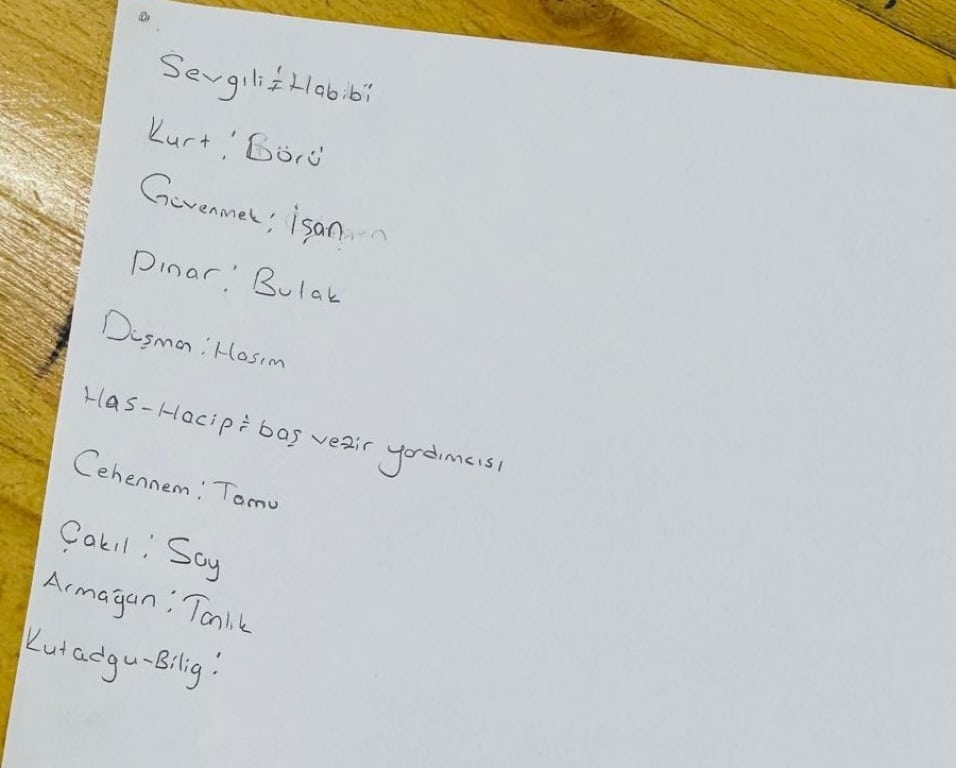 Sevgili : Habibi
Kurt : Börü
Güvenmek : İşan
Pınar : Bulak
Düşman : Hasım
Has-Hacip : baş vezir yardımcısı
Cehennem : Tamu
Çakıl : Say
Armağan : Tanlık
Kutadgu-Bilig :